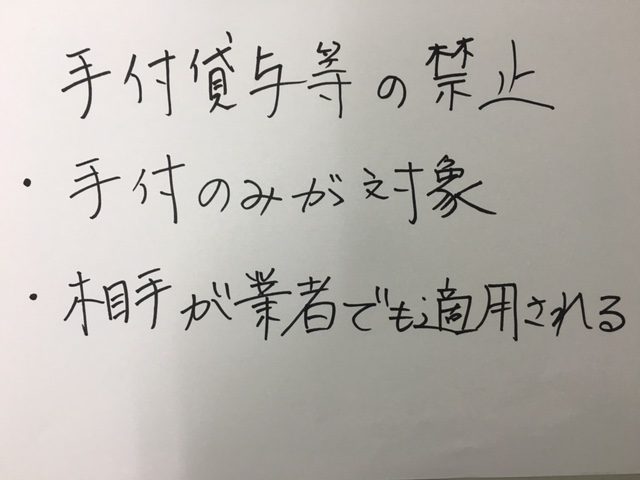 手付貸与等の禁止
・手付のみが対象
・相手が業者でも適用される